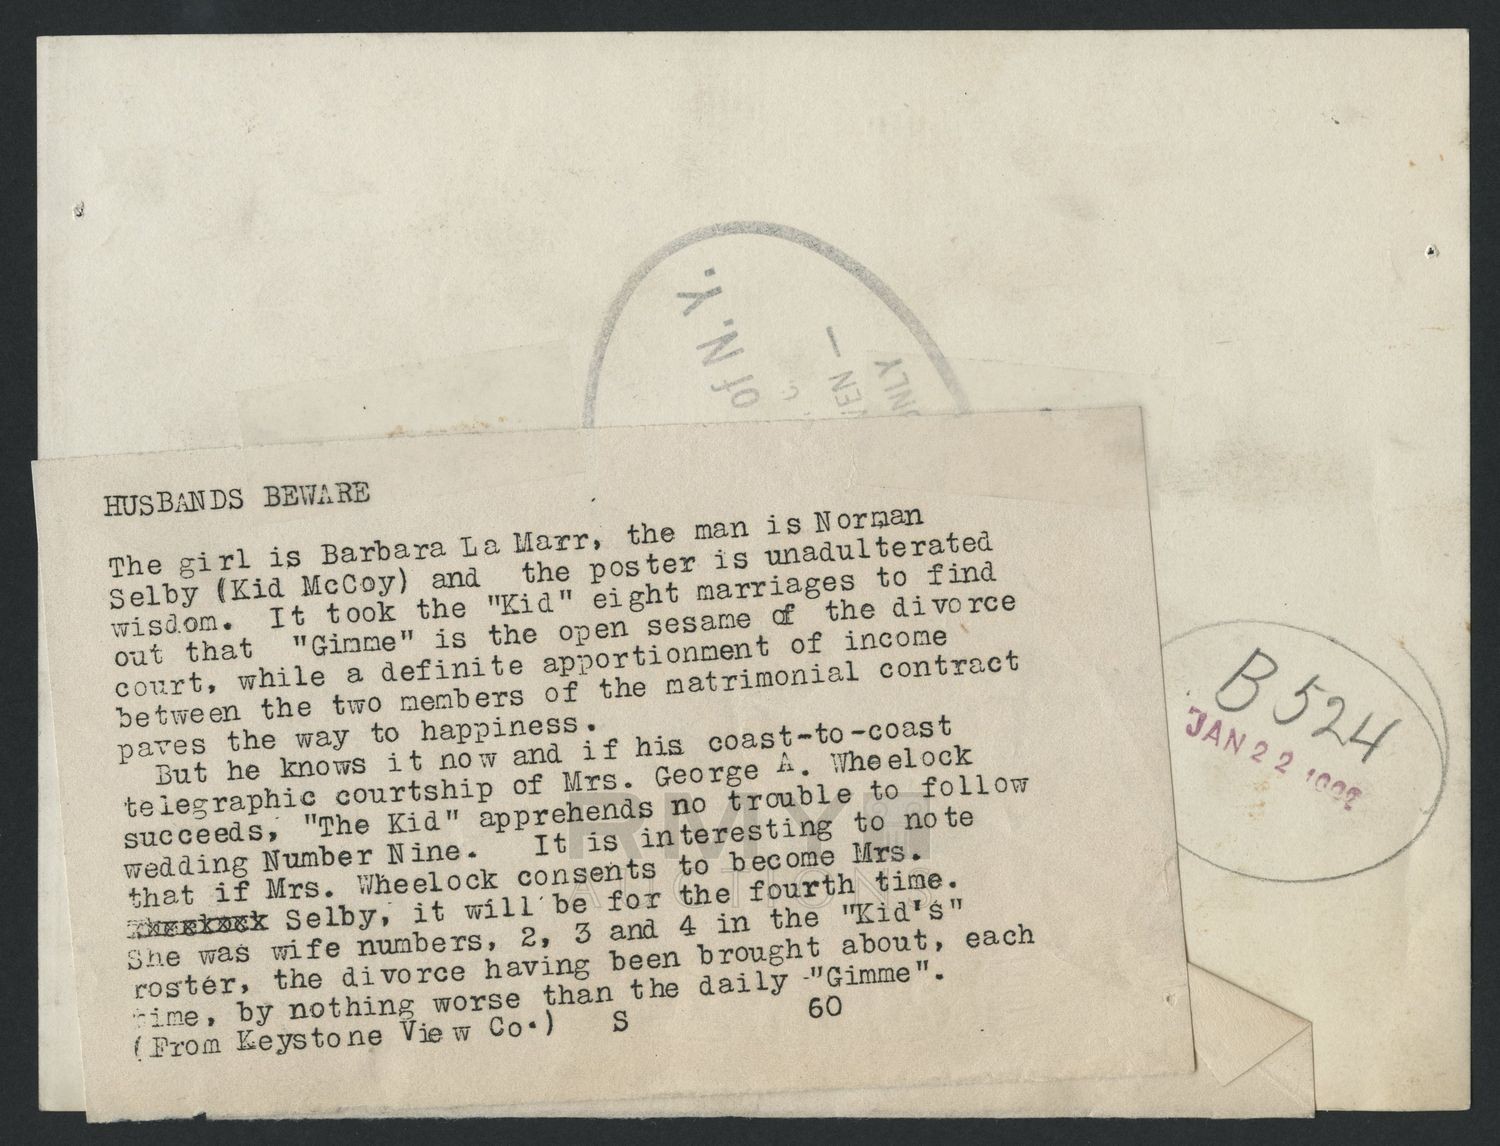 of N. Y.
ONLY
HUSBANDS BEWARE
The girl is Barbara La Marr, the man is Norman
Selby (Kid McCoy) and the poster is unadulterated
wisdom. It took the "Kid" eight marriages to find
out that "Gimme" is the open sesame of the divorce
court, while a definite apportionment of income
between the two members of the matrimonial contract
paves the way to happiness.
But he knows it now and if his coast-to-coast
telegraphic courtship of Mrs. George A. Wheelock
succeeds, "The Kid" apprehends no trouble to follow
wedding Number Nine. It is interesting to note
that if Mrs. Wheelock consents to become Mrs.
Selby, it will be for the fourth time.
She was wife numbers, 2, 3 and 4 in the "Kid's"
roster, the divorce having been brought about, each
time, by nothing worse than the daily -"Gimme".
(From Keystone View Co.) S 60
B 524
JAN 22
RMYM
AUCTIONS